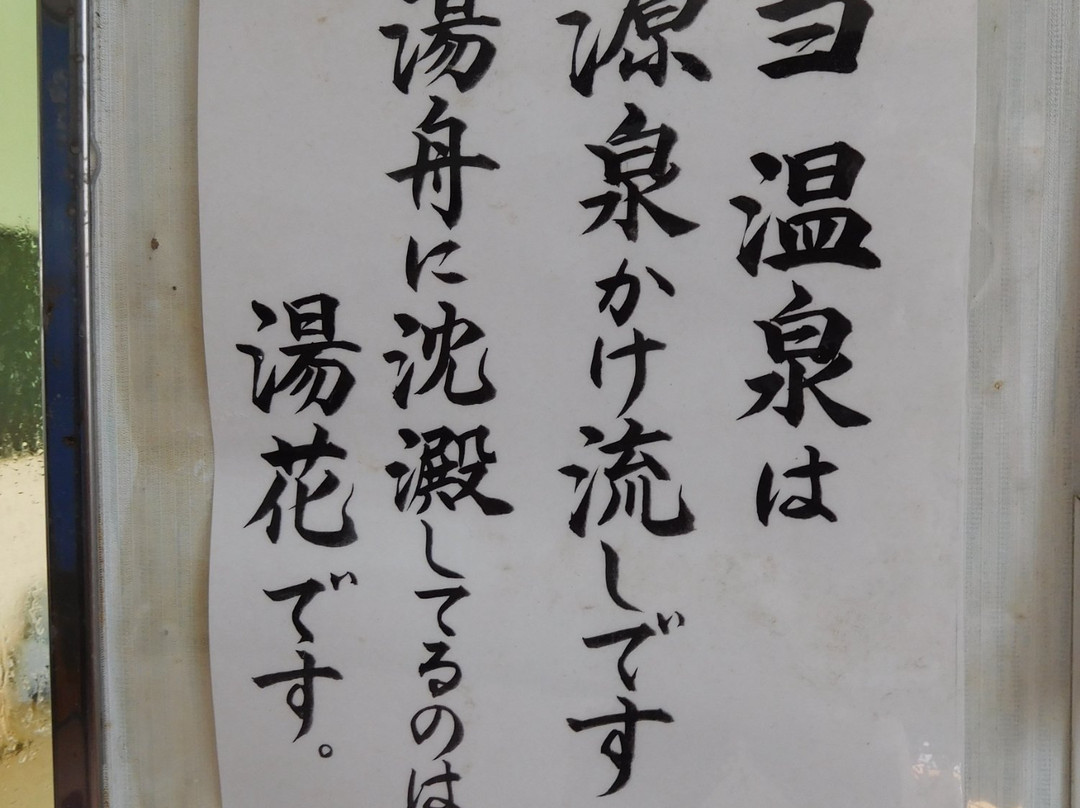 ヨ温泉は
源泉かけ流しです
湯舟に沈澱してるのは
湯花です。